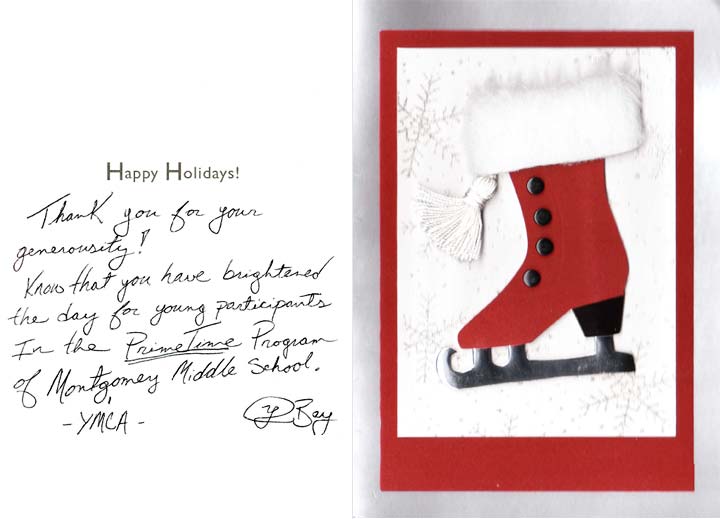 Happy Holidays!
Thank you for your
generousity!
Know that you have brightened
the day for young participants
In the PrimeTime Program
of Montgomey Middle School.
-YMCA-
Bay